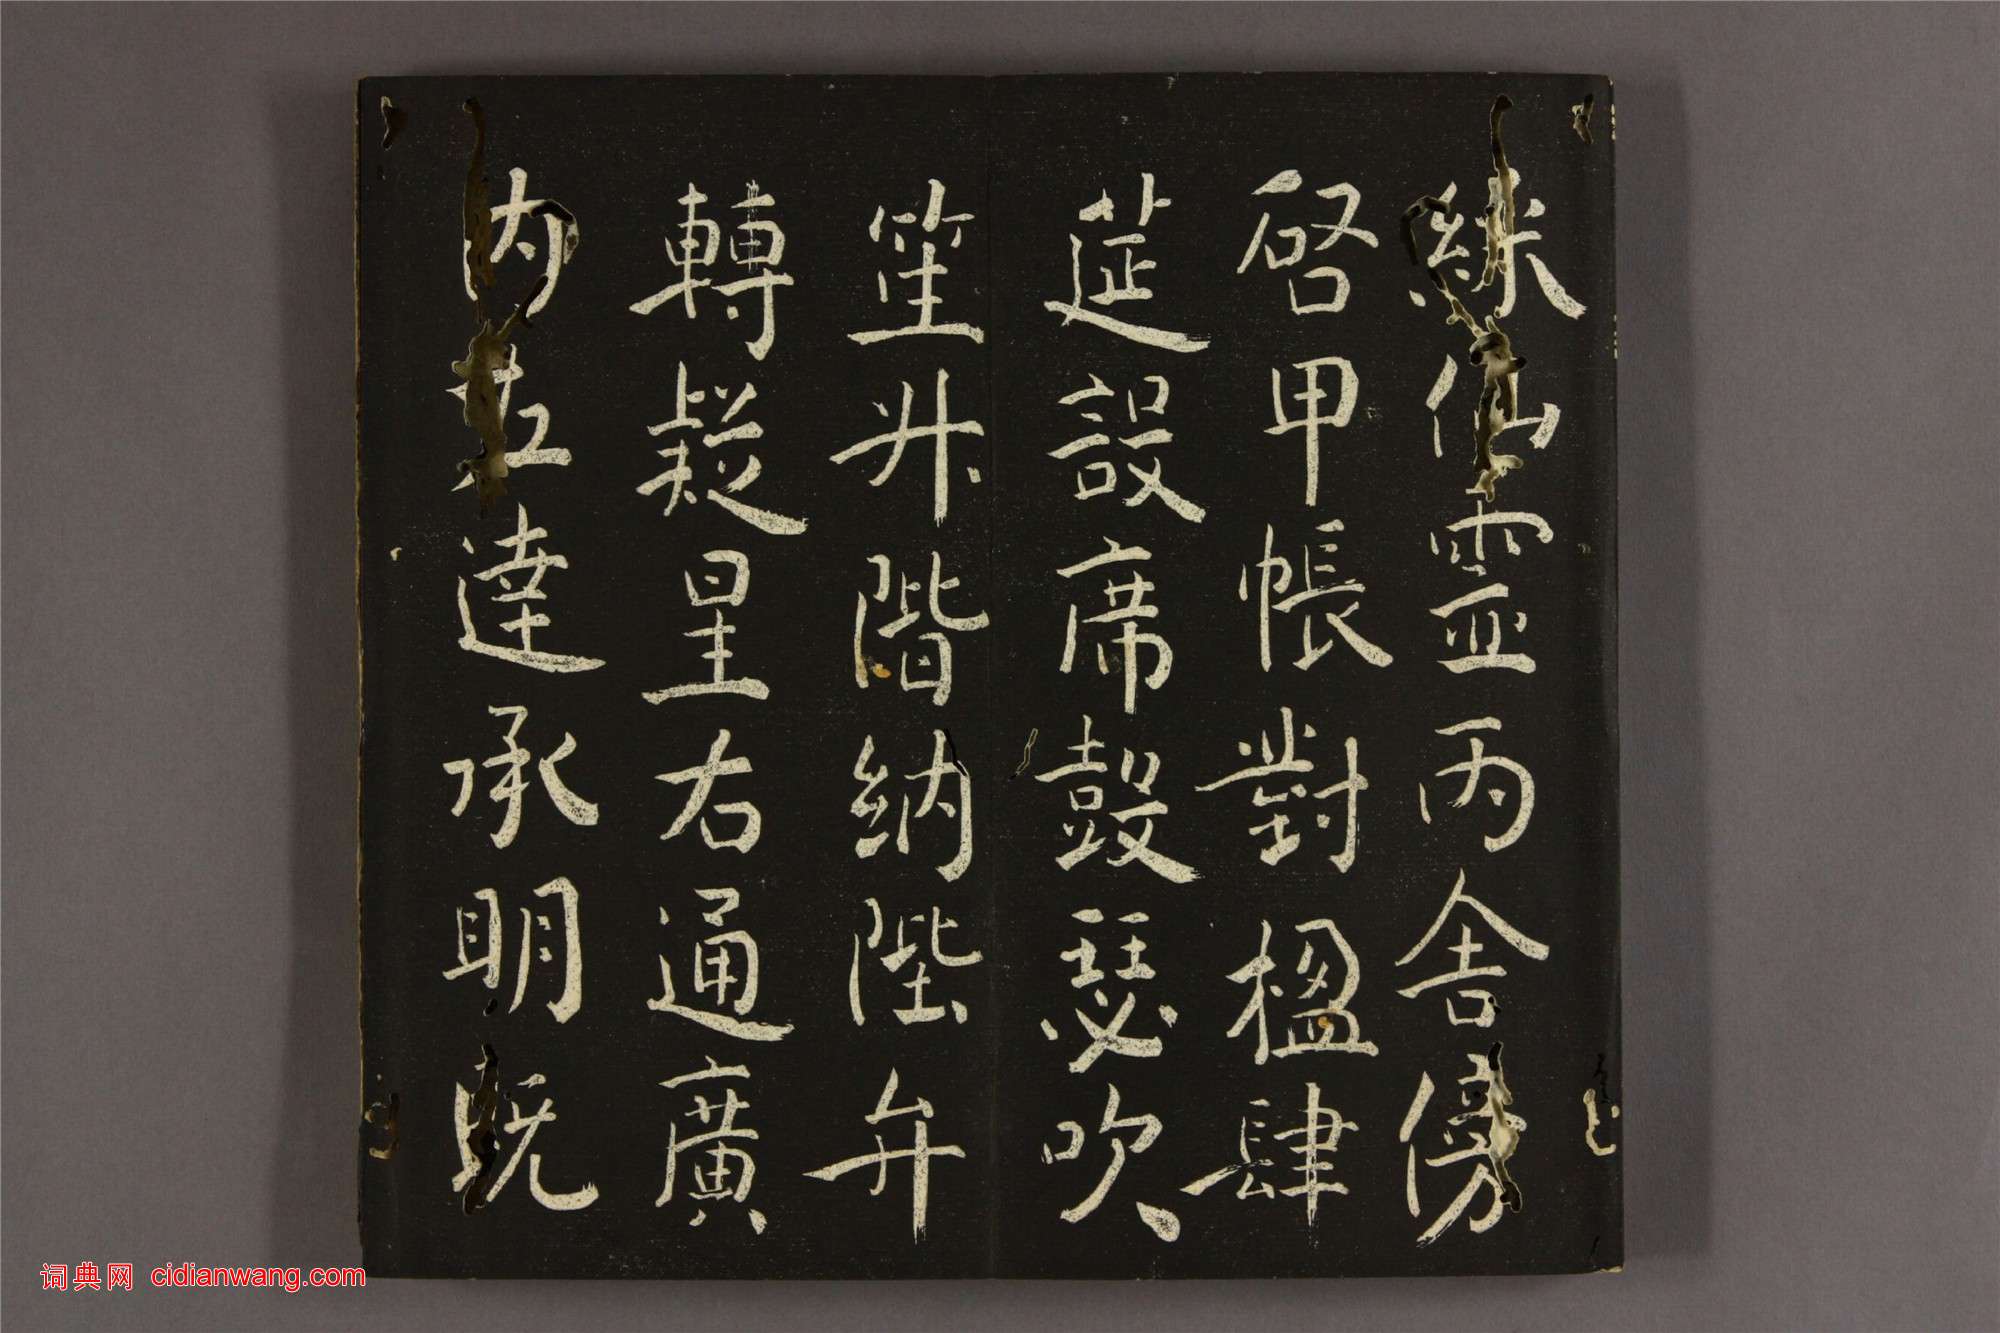 綵仙靈丙舍傍
啓甲帳對楹肆
筵設席鼓瑟吹
笙升階納陛弁
轉疑星右通廣
內左達承明既
词典网 cidianwang.com